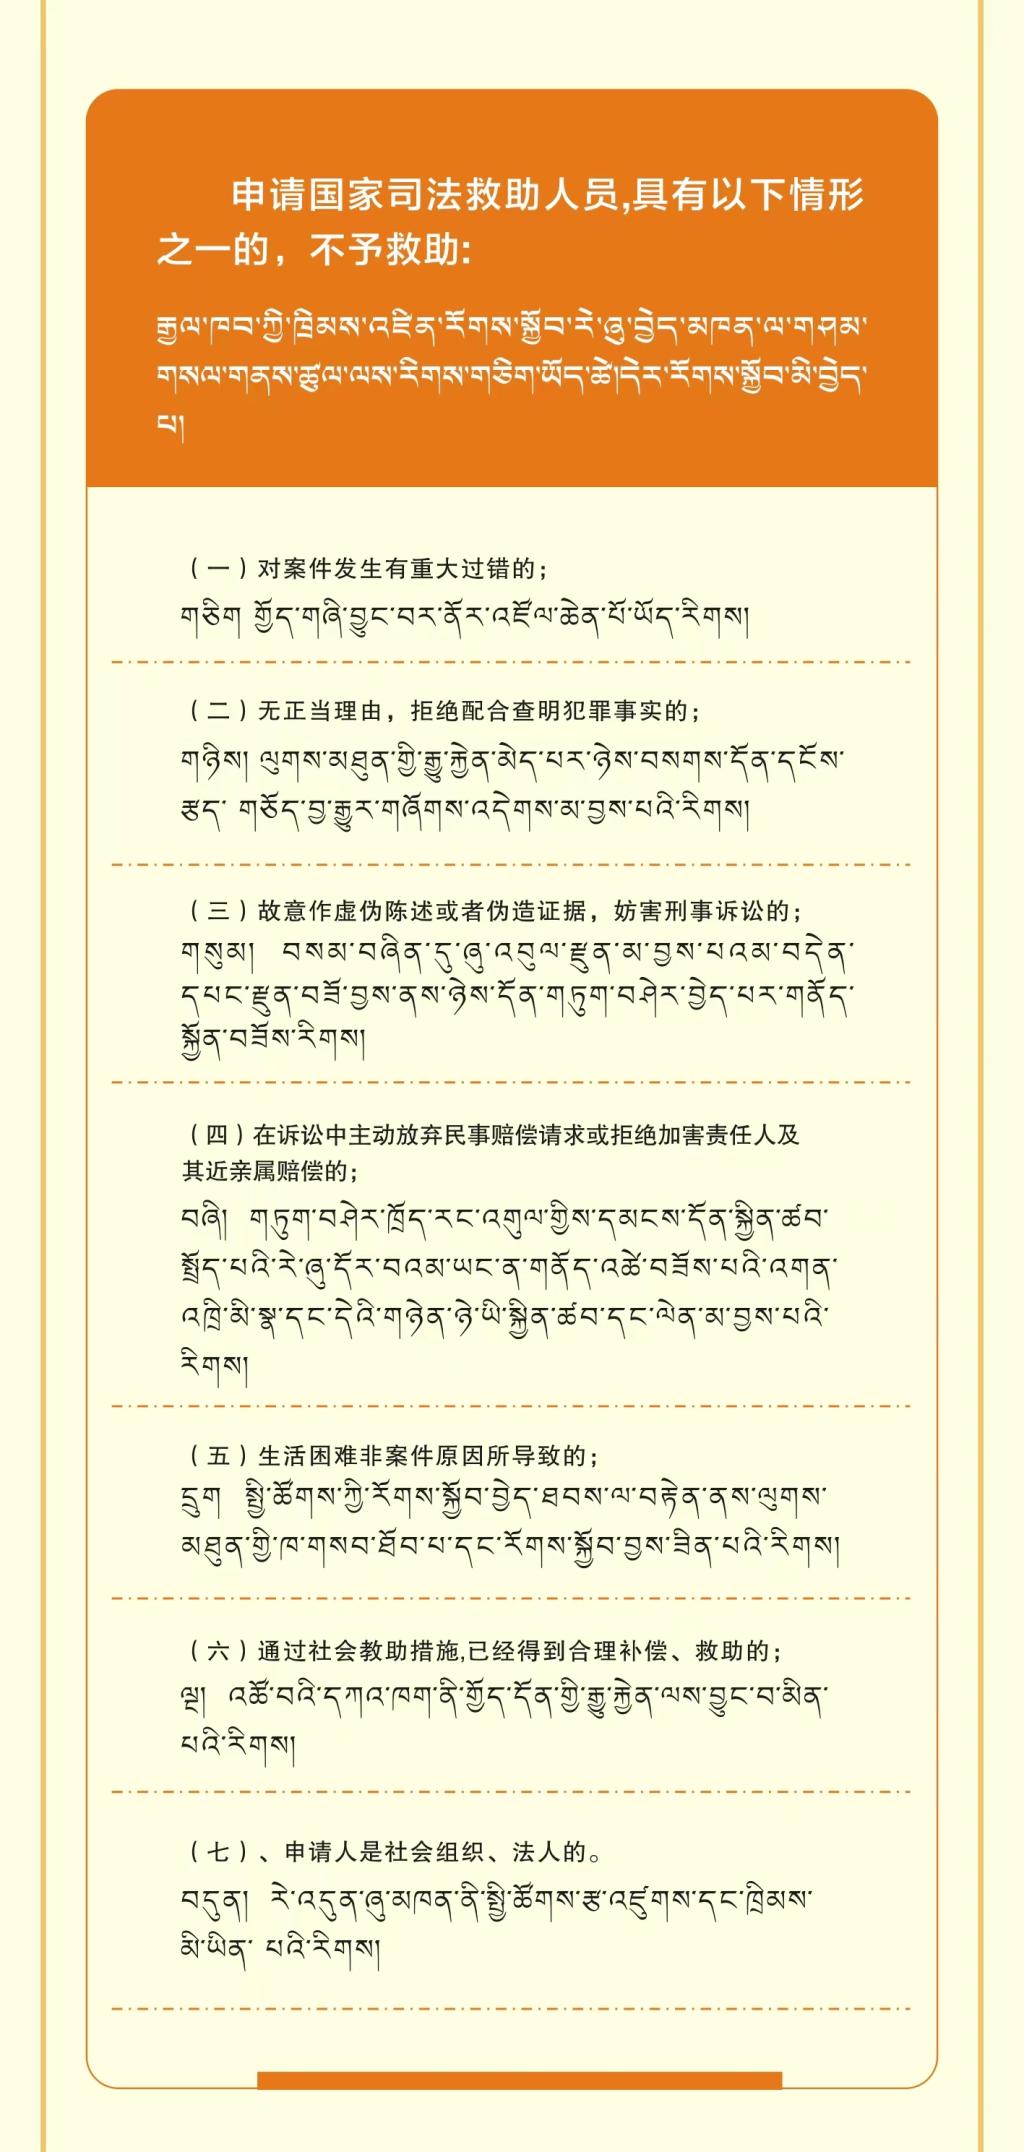 申请国家司法救助人员,具有以下情形
之一的，不予救助:
རྒྱལ་ཁབ་ཀྱི་ཁྲིམས་འཛིན་རོགས་སྐྱོབ་རེ་ཞུ་བྱེད་མཁན་ལ་གཤམ་
གསལ་གནས་ཚུལ་ལས་རིགས་གཅིག་ཡོད་ཚེ།དེར་རོགས་སྐྱོབ་མི་བྱེད་
པ།
（一）对案件发生有重大过错的；
གཅིག གྱོད་གཞི་བྱུང་བར་ནོར་འཛོལ་ཆེན་པོ་ཡོད་རིགས།
（二）无正当理由，拒绝配合查明犯罪事实的；
གཉིས། ལུགས་མཐུན་གྱི་རྒྱུ་རྐྱེན་མེད་པར་ཉེས་བསགས་དོན་དངོས་
རྩད་ གཅོད་བྱ་རྒྱུར་གཞོགས་འདེགས་མ་བྱས་པའི་རིགས།
（三）故意作虚伪陈述或者伪造证据，妨害刑事诉讼的；
གསུམ། བསམ་བཞིན་དུ་ཞུ་འབུལ་རྫུན་མ་བྱས་པའམ་བདེན་
དཔང་རྫུན་བཟོ་བྱས་ནས་ཉེས་དོན་གཏུག་བཤེར་བྱེད་པར་གནོད་
སྐྱོན་བཟོས་རིགས།
（四）在诉讼中主动放弃民事赔偿请求或拒绝加害责任人及
其近亲属赔偿的；
བཞི། གཏུག་བཤེར་ཁྲོད་རང་འགུལ་གྱིས་དམངས་དོན་སྐྱིན་ཚབ་
སྤྲོད་པའི་རེ་ཞུ་དོར་བའམ་ཡང་ན་གནོད་འཚེ་བཟོས་པའི་འགན་
འཁྲི་མི་སྣ་དང་དེའི་གཉེན་ཉེ་ཡི་སྐྱིན་ཚབ་དང་ལེན་མ་བྱས་པའི་
རིགས།
（五）生活困难非案件原因所导致的；
དྲུག སྤྱི་ཚོགས་ཀྱི་རོགས་སྐྱོབ་བྱེད་ཐབས་ལ་བརྟེན་ནས་ལུགས་
མཐུན་གྱི་ཁ་གསབ་ཐོབ་པ་དང་རོགས་སྐྱོབ་བྱས་ཟིན་པའི་རིགས།
（六）通过社会教助措施,已经得到合理补偿、救助的；
ལྔ། འཚོ་བའི་དཀའ་ཁག་ནི་གྱོད་དོན་གྱི་རྒྱུ་རྐྱེན་ལས་བྱུང་བ་མིན་
པའི་རིགས།
（七）、申请人是社会组织、法人的。
བདུན། རེ་འདུན་ཞུ་མཁན་ནི་སྤྱི་ཚོགས་རྩ་འཛུགས་དང་ཁྲིམས་
མི་ཡིན་ པའི་རིགས།